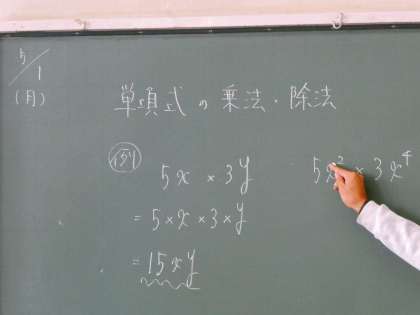 5/1
(月)
単項式の乗法・除法
例
5x × 3y
= 5 × x × 3 × y
= 15xy
5x² × 3x⁴